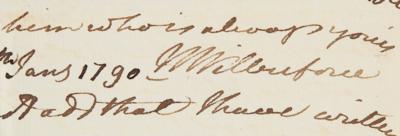 him who is always yours
th Jany 1790 W Wilberforce
add that I have written